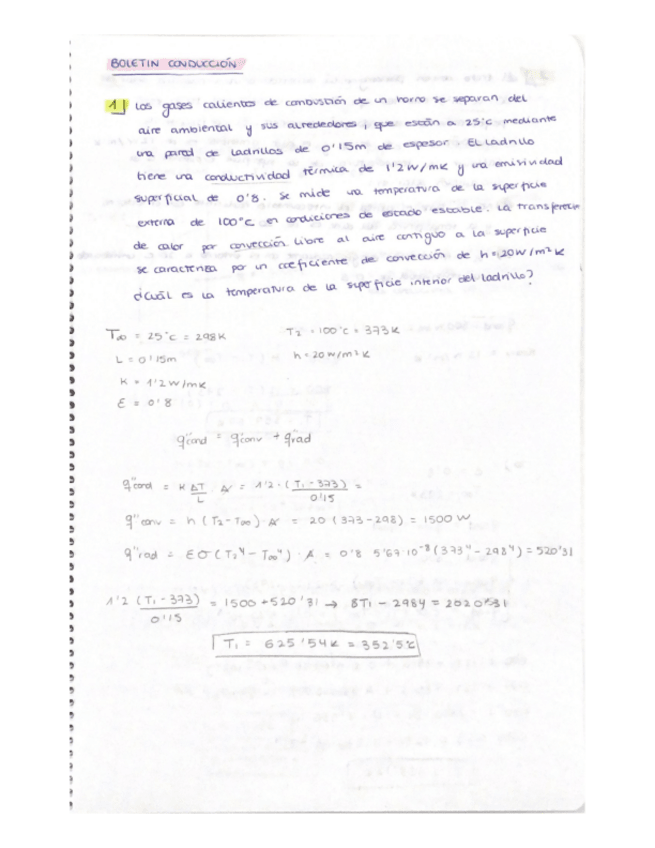 BOLETIN CONDUCCIÓN
1 Los gases calientes de combustión de un horno se separan del
aire ambiental y sus alrededores, que están a 25°C mediante
una pared de ladrillos de 0'15m de espesor. El ladrillo
tiene una conductividad térmica de 1'2 W/mK y una emisividad
superficial de 0'8. Se mide una temperatura de la superficie
externa de 100°C en condiciones de estado estable. La transferencia
de calor por convección libre al aire contiguo a la superficie
se caracteriza por un coeficiente de convección de h=20W/m²K
¿Cuál es la temperatura de la superficie interior del ladrillo?
T∞ = 25°C = 298K T2 = 100°C = 373K
L = 0'15m h = 20W/m²K
K = 1'2 W/mK
ε = 0'8
q''cond = q''conv + q''rad
q''cond = K ΔT/L · A = 1'2 · (T1 - 373)/0'15 =
q''conv = h (T2 - T∞) · A = 20 (373 - 298) = 1500 W
q''rad = εσ (T2⁴ - T∞⁴) · A = 0'8 5'67·10⁻⁸ (373⁴ - 298⁴) = 520'31
1'2 (T1 - 373)/0'15 = 1500 + 520'31 → 8T1 - 2984 = 2020'31
T1 = 625'54K = 352'5°C